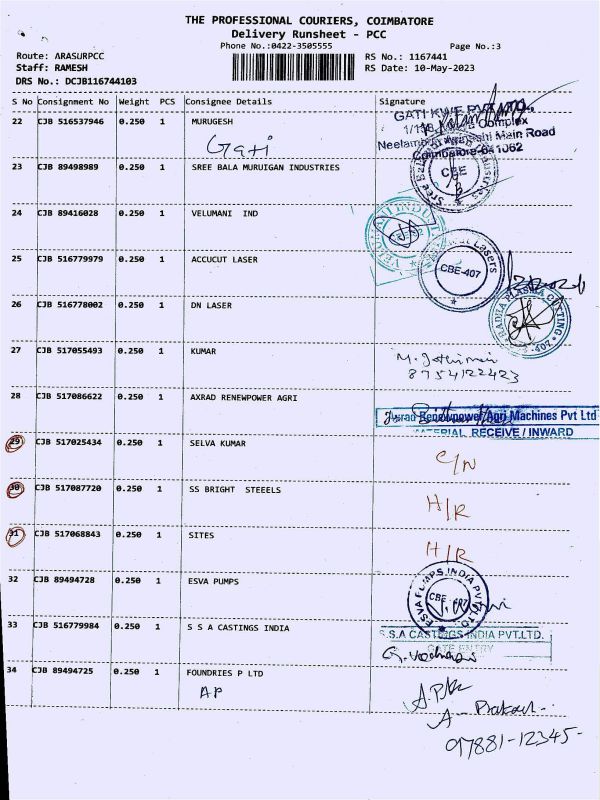 THE PROFESSIONAL COURIERS, COIMBATORE
Delivery Runsheet - PCC
Phone No.:0422-3505555
Page No.:3
Route: ARASURPCC
RS No.: 1167441
Staff: RAMESH
RS Date: 10-May-2023
DRS No.: DCJB116744103
S No Consignment No Weight PCS Consignee Details Signature
22 CJB 516537946 0.250 1 MURUGESH
Gati
GATI KWE PVT
1/118, Complex
Neelambur Avinashi Main Road
Coimbatore-641062
23 CJB 89498989 0.250 1 SREE BALA MURUIGAN INDUSTRIES
CBE
24 CJB 89416028 0.250 1 VELUMANI IND
25 CJB 516779979 0.250 1 ACCUCUT LASER
Lasers
CBE-407
26 CJB 516778002 0.250 1 DN LASER
RADHA PLASMA CUTTING
27 CJB 517055493 0.250 1 KUMAR
8754122423
28 CJB 517086622 0.250 1 AXRAD RENEWPOWER AGRI
Renewpower Agri Machines Pvt Ltd
MATERIAL RECEIVE / INWARD
29 CJB 517025434 0.250 1 SELVA KUMAR
C/N
30 CJB 517087720 0.250 1 SS BRIGHT STEEELS
H/R
31 CJB 517068843 0.250 1 SITES
H/R
32 CJB 89494728 0.250 1 ESVA PUMPS
ESVA PUMPS INDIA PVT LTD
CBE-407
33 CJB 516779984 0.250 1 S S A CASTINGS INDIA
S.S.A CASTINGS INDIA PVT.LTD.
GATE ENTRY
34 CJB 89494725 0.250 1 FOUNDRIES P LTD
AP
A. Prakash.
97881-12345-